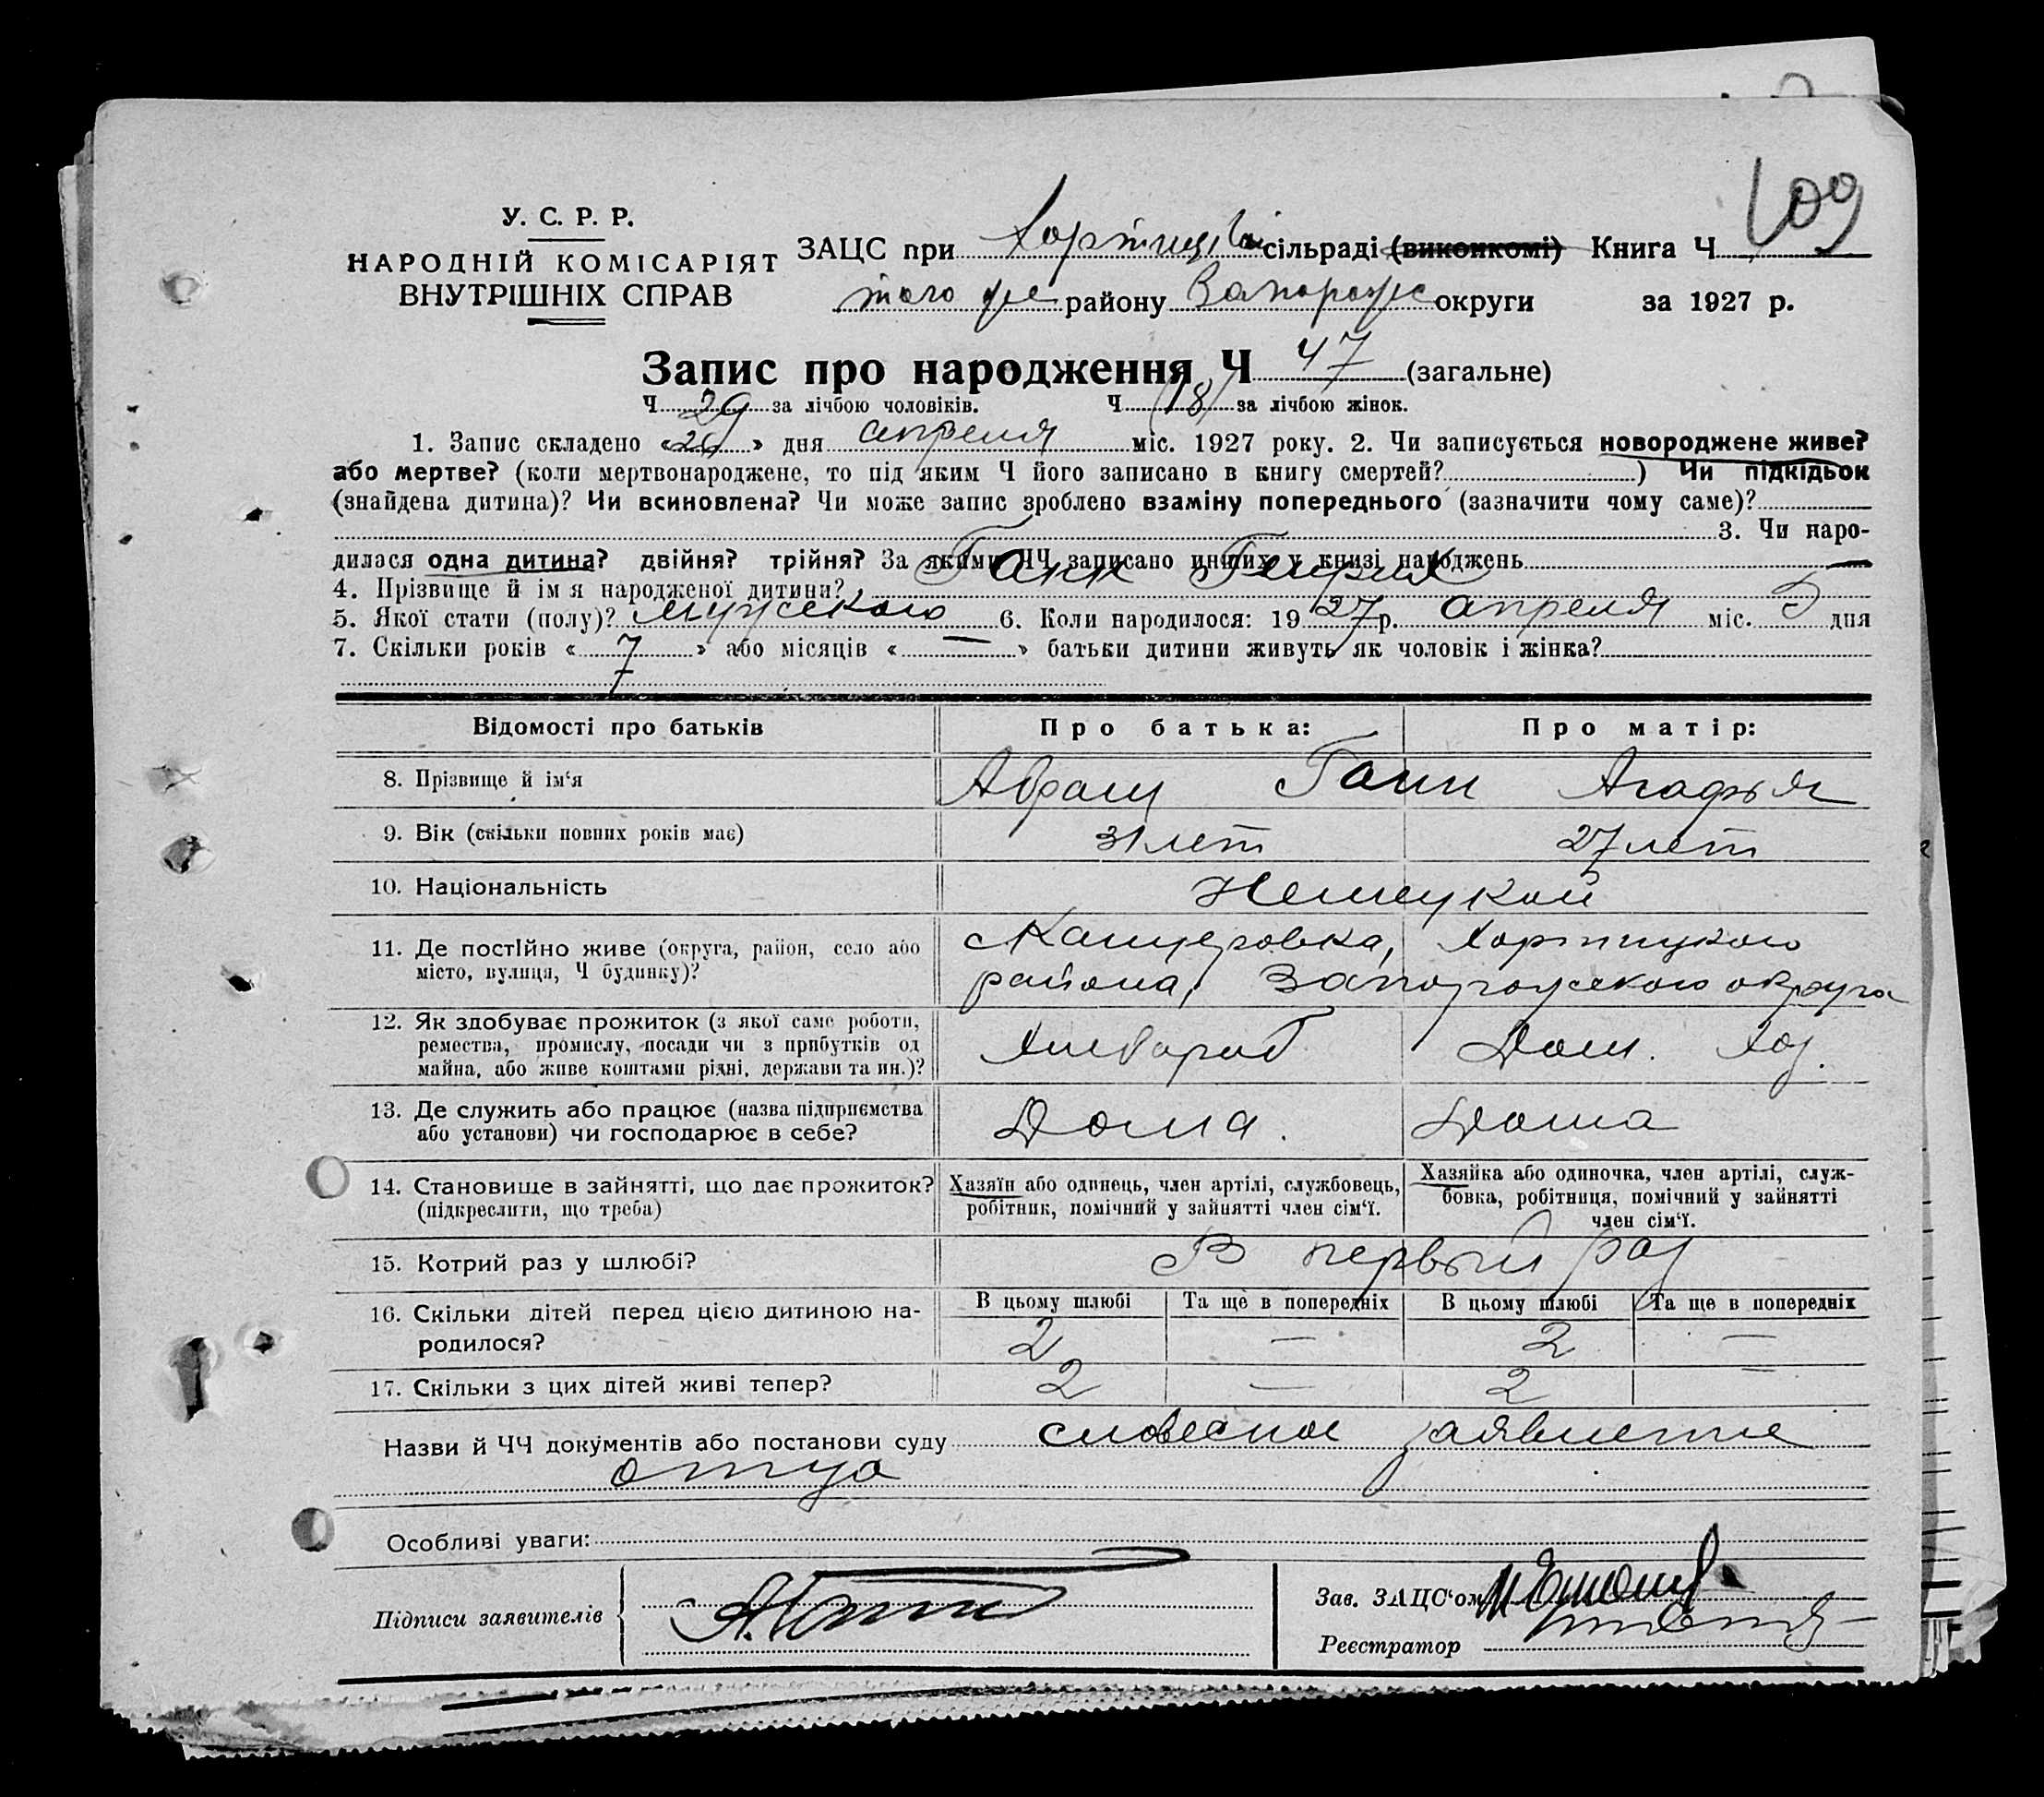 109
У. С. Р. Р.
НАРОДНІЙ КОМІСАРІЯТ
ВНУТРІШНІХ СПРАВ
ЗАЦС при сільраді (виконкомі) Книга Ч
того же району Запорожс округи за 1927 р.
Запис про народження Ч 47 (загальне)
Ч 29 за лічбою чоловіків. Ч (18) за лічбою жінок.
1. Запис складено «26» дня апреля міс. 1927 року. 2. Чи записується новороджене живе?
або мертве? (коли мертвонароджене, то під яким Ч його записано в книгу смертей? ) Чи підкідьок
(знайдена дитина)? Чи всиновлена? Чи може запис зроблено взаміну попереднього (зазначити чому саме)?
3. Чи наро-
дилася одна дитина? двійня? трійня? За якими ЧЧ записано инших у книзі народжень —
4. Прізвище й імя народженої дитини? Ганн Генрих
5. Якої стати (полу)? мужского 6. Коли народилося: 1927 р. апреля міс. 5 дня
7. Скільки років «7» або місяців «—» батьки дитини живуть як чоловік і жінка?
7
Відомості про батьків Про батька: Про матір:
8. Прізвище й ім‘я Абрам Ганн Агафья
9. Вік (скільки повних років має) 31 лет 27 лет
10. Національність Немецкой
11. Де постійно живе (округа, район, село або с Канцеровка, Хортицкого
місто, вулиця, Ч будинку)? района, Запорожского округа
12. Як здобуває прожиток (з якої саме роботи,
ремества, промислу, посади чи з прибутків од Хлебороб Дом. Хоз.
майна, або живе коштами рідні, держави та ин.)?
13. Де служить або працює (назва підприємства
або установи) чи господарює в себе? Дома. Дома
14. Становище в зайнятті, що дає прожиток? Хазяїн або одинець, член артілі, службовець, Хазяйка або одиночка, член артілі, служ-
(підкреслити, що треба) робітник, помічний у зайнятті член сім‘ї. бовка, робітниця, помічний у зайнятті
член сім‘ї.
15. Котрий раз у шлюбі? В первый раз
16. Скільки дітей перед цією дитиною на- В цьому шлюбі Та ще в попередніх В цьому шлюбі Та ще в попередніх
родилося? 2 — 2 —
17. Скільки з цих дітей живі тепер? 2 — 2 —
Назви й ЧЧ документів або постанови суду словесное заявление
отца
Особливі уваги:
Підписи заявителів А. Ганн
Зав. ЗАЦС‘ом
Реєстратор